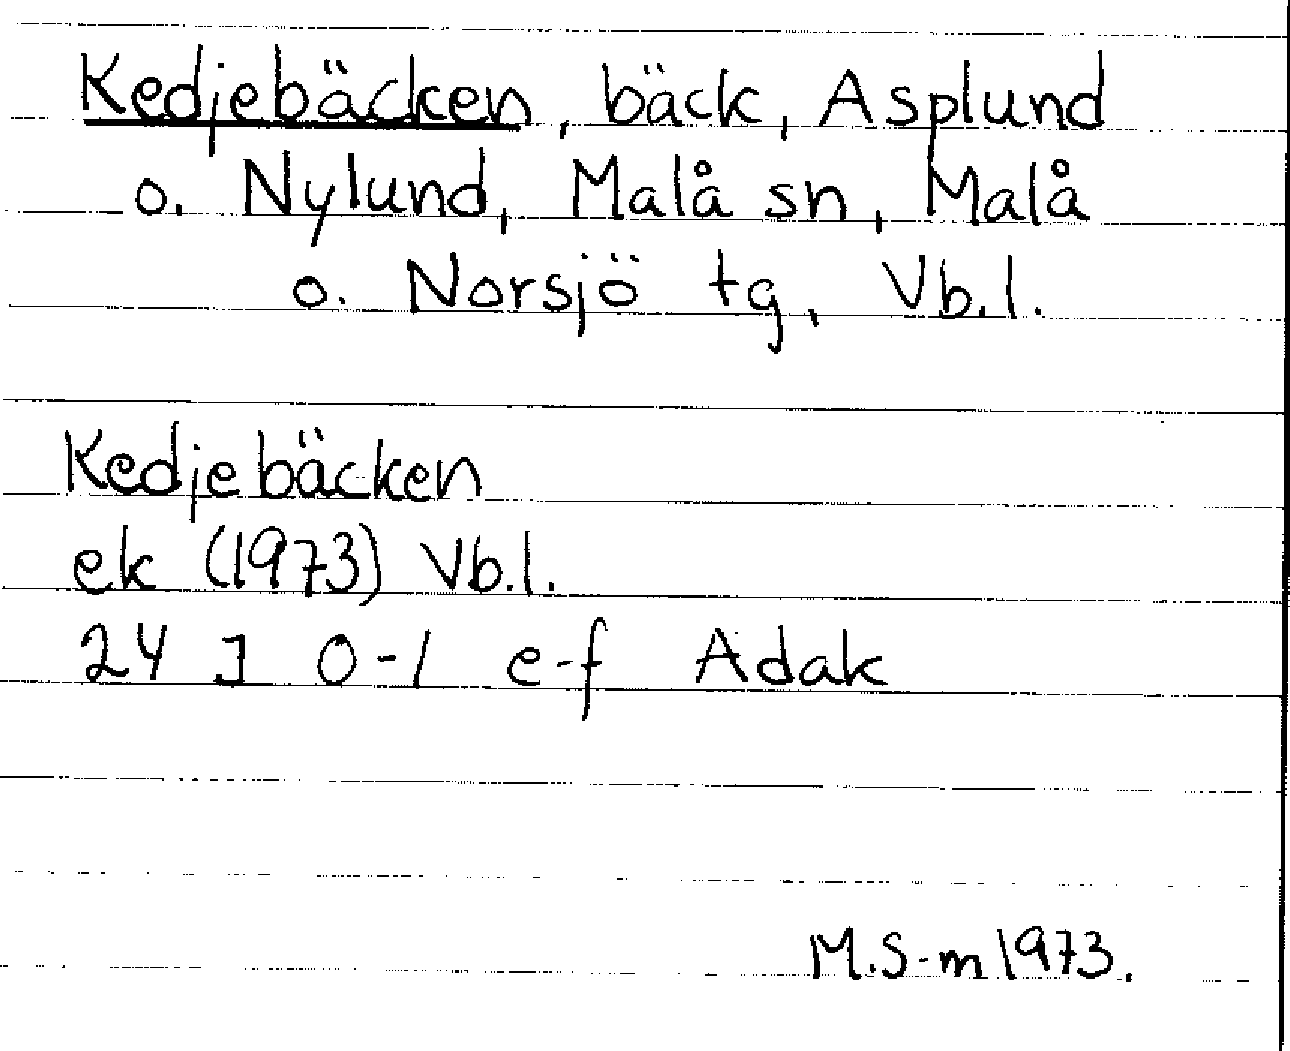 Kedjebäcken, bäck, Asplund
o. Nylund, Malå sn, Malå
o. Norsjö tg, Vb.l.
Kedjebäcken
ek (1973) Vb.l.
24 J 0-1 e-f Adak
M.S-m 1973.